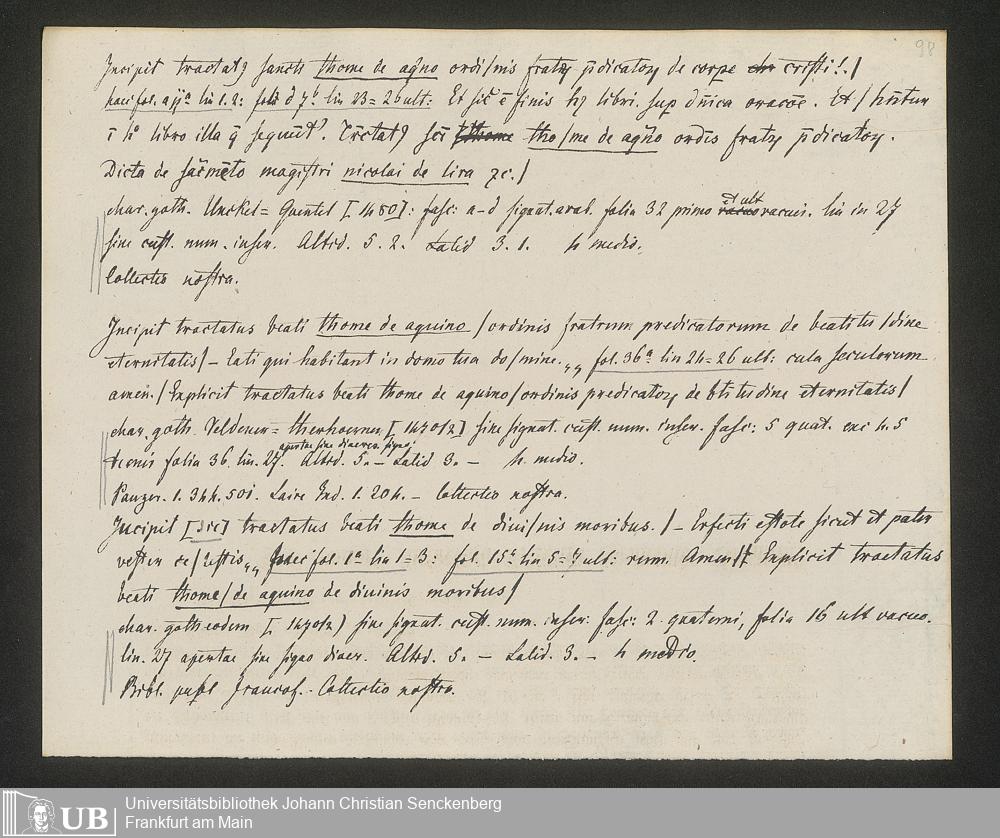 98
Incipit tractatꝯ sancti thome de aqͥno ordi/nis fratrꝝ p̄dicatorꝝ de corpe cristi!./
haec fol. a ija lin 1. 2: folii d 7b lin 23=26 ult: Et sic ē finis hꝯ libri. sup dn̄ica oracōe. Et / hn̄tur
ī hº libro illa q̄ sequūt᷑. Tr̄ctatꝯ sc̄i tho/me de aqͥno ordīs fratrꝝ p̄dicatorꝝ.
Dicta de sac̄mēto magistri nicolai de lira ꝛc./
char. goth. Unckel = Quentel [1480]: fasc: a-d signat. arab. folia 32 primo et ult vacuis. lin in 27
sine cust. num. inscr. Altid. 5. 2. Latid 3. 1. h medio.
Collectio nostra.
Incipit tractatus beati thome de aquino /ordinis fratrum predicatorum de beatitu /dine
eternitatis/ – Eati qui habitant in domo tua do/mine. „ fol. 36a lin 24=26 ult: cula seculorum
amen./ Explicit tractatus beati thome de aquino/ordinis predicatorꝝ de btitudine eternitatis/
char. goth. Veldener = therhoernen [1470/2] sine signat. cust. num. inscr. fasc: 5 quat. exc 4. 5
apertae sine diaeres. signo:
ternis folia 36. lin. 27. Altid. 5. – Latid 3. – h. medio.
Panzer. 1. 344. 501. Laire Ind. 1. 204. – Collectio nostra.
Incipit [sic] tractatus beati thome de divi/nis moribus. / – Erfecti estote sicut et pater
vester ce/lestis „ haec fol. 1a lin 1=3: fol. 15b lin 5=7 ult: rem. Amen// Explicit tractatus
beati thome/de aquino de divinis moribus/
char. goth eodem [1470/2) sine signat. cust. num. inscr. fasc: 2. quaterni, folia 16 ult vacuo.
lin. 27 apertae sine signo diaer. Altid. 5. – Latid. 3. – h medio.
Bibl. publ francof. – Collectio nostra.
UB
Universitätsbibliothek Johann Christian Senckenberg
Frankfurt am Main